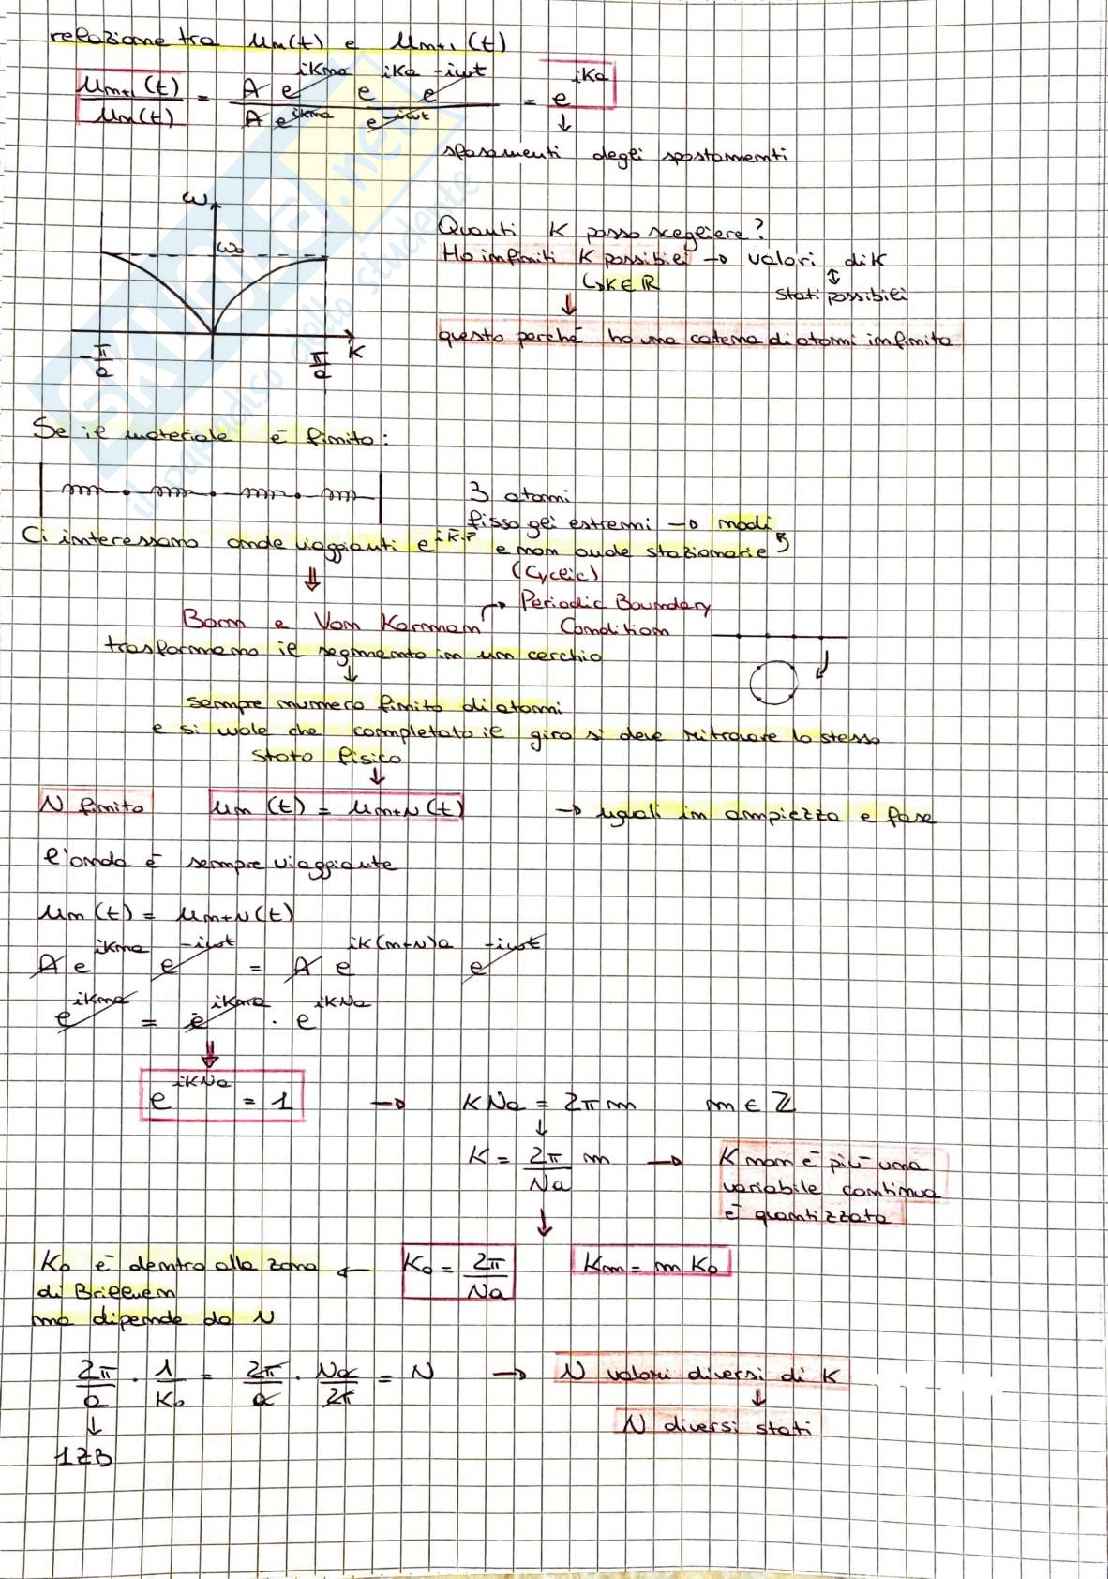 relazione tra un(t) e un+1(t)
un+1(t)/un(t) = A e^ikna e^ika e^-iωt / A e^ikna e^-iωt = e^ika
↓
sfasamenti degli spostamenti
ω
ω0
-π/a
π/a
K
Quanti K posso scegliere?
Ho infiniti K possibili → valori di K
↳ K∈ℝ
↕
stati possibili
⇓
questo perché ho una catena di atomi infinita
Se il materiale è finito:
3 atomi
fisso gli estremi → modi
Ci interessano onde viaggianti e^ik·r e non onde stazionarie
⇓
(Cyclic)
Born e Von Karman → Periodic Boundary
Condition
trasformano il segmento in un cerchio
↓
sempre numero finito di atomi
e si vuole che completato il giro si deve ritrovare lo stesso
stato fisico
↓
N finito un(t) = un+N(t) → uguali in ampiezza e fase
l'onda è sempre viaggiante
un(t) = un+N(t)
A e^ikna e^-iωt = A e^ik(n+N)a e^-iωt
e^ikna = e^ikna · e^ikNa
⇓
e^ikNa = 1 → KNa = 2πm m ∈ ℤ
↓
K = 2π/Na m → K non è più una
variabile continua
è quantizzata
↓
K0 è dentro alla zona ← K0 = 2π/Na Km = m K0
di Brillouin
ma dipende da N
2π/a · 1/K0 = 2π/a · Na/2π = N → N valori diversi di K
↓
1ZB
↓
N diversi stati